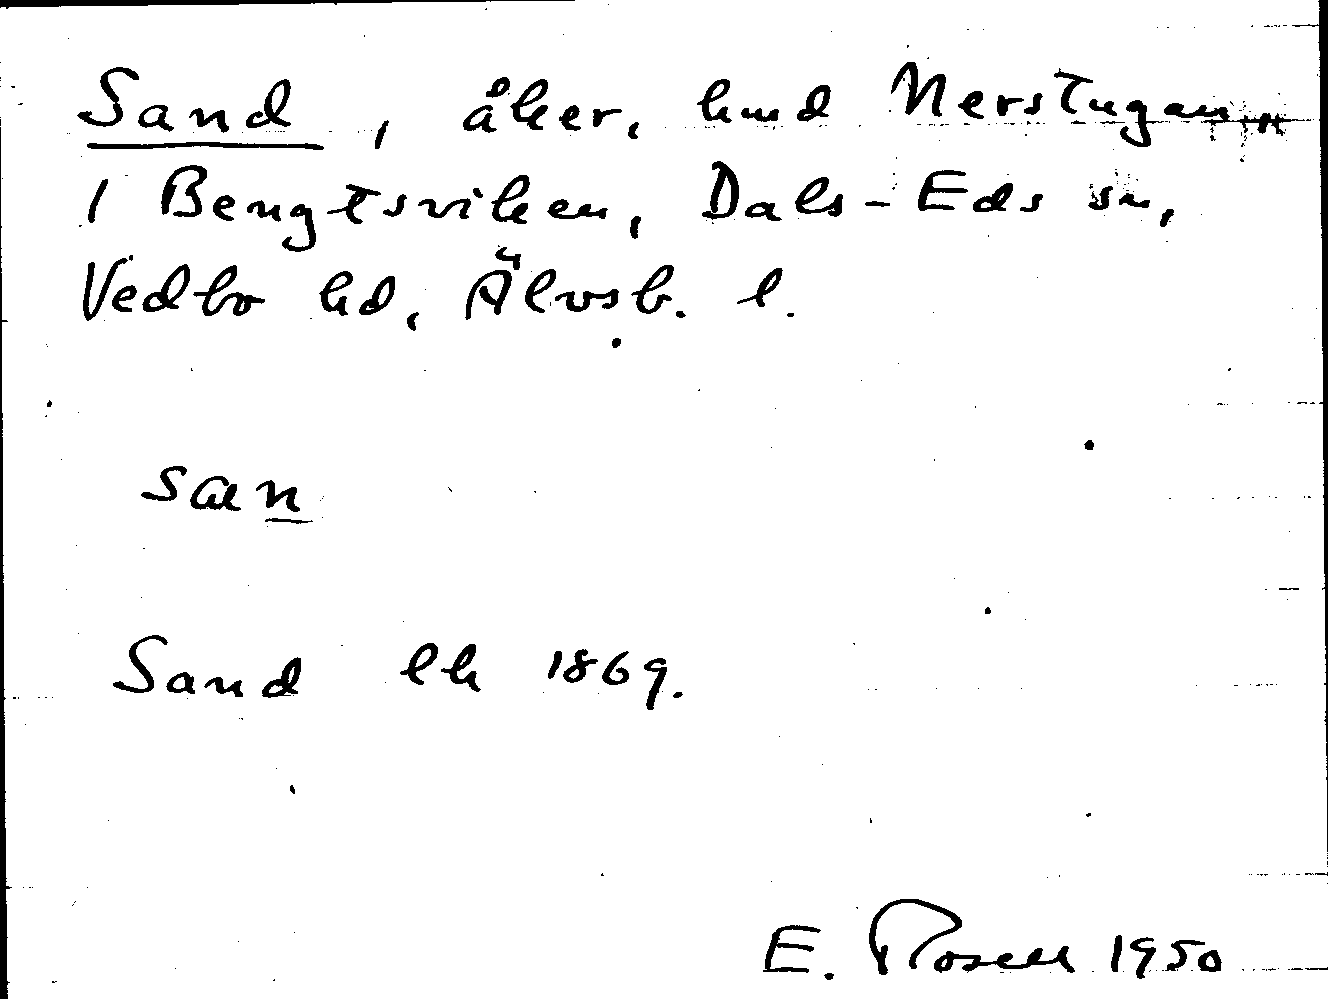 Sand, åker, hmd Nerstugan
1 Bengtsviken, Dals-Eds sn,
Vedbo hd, Älvsb. l.
sæn
Sand lk 1869.
E. Rosell 1950